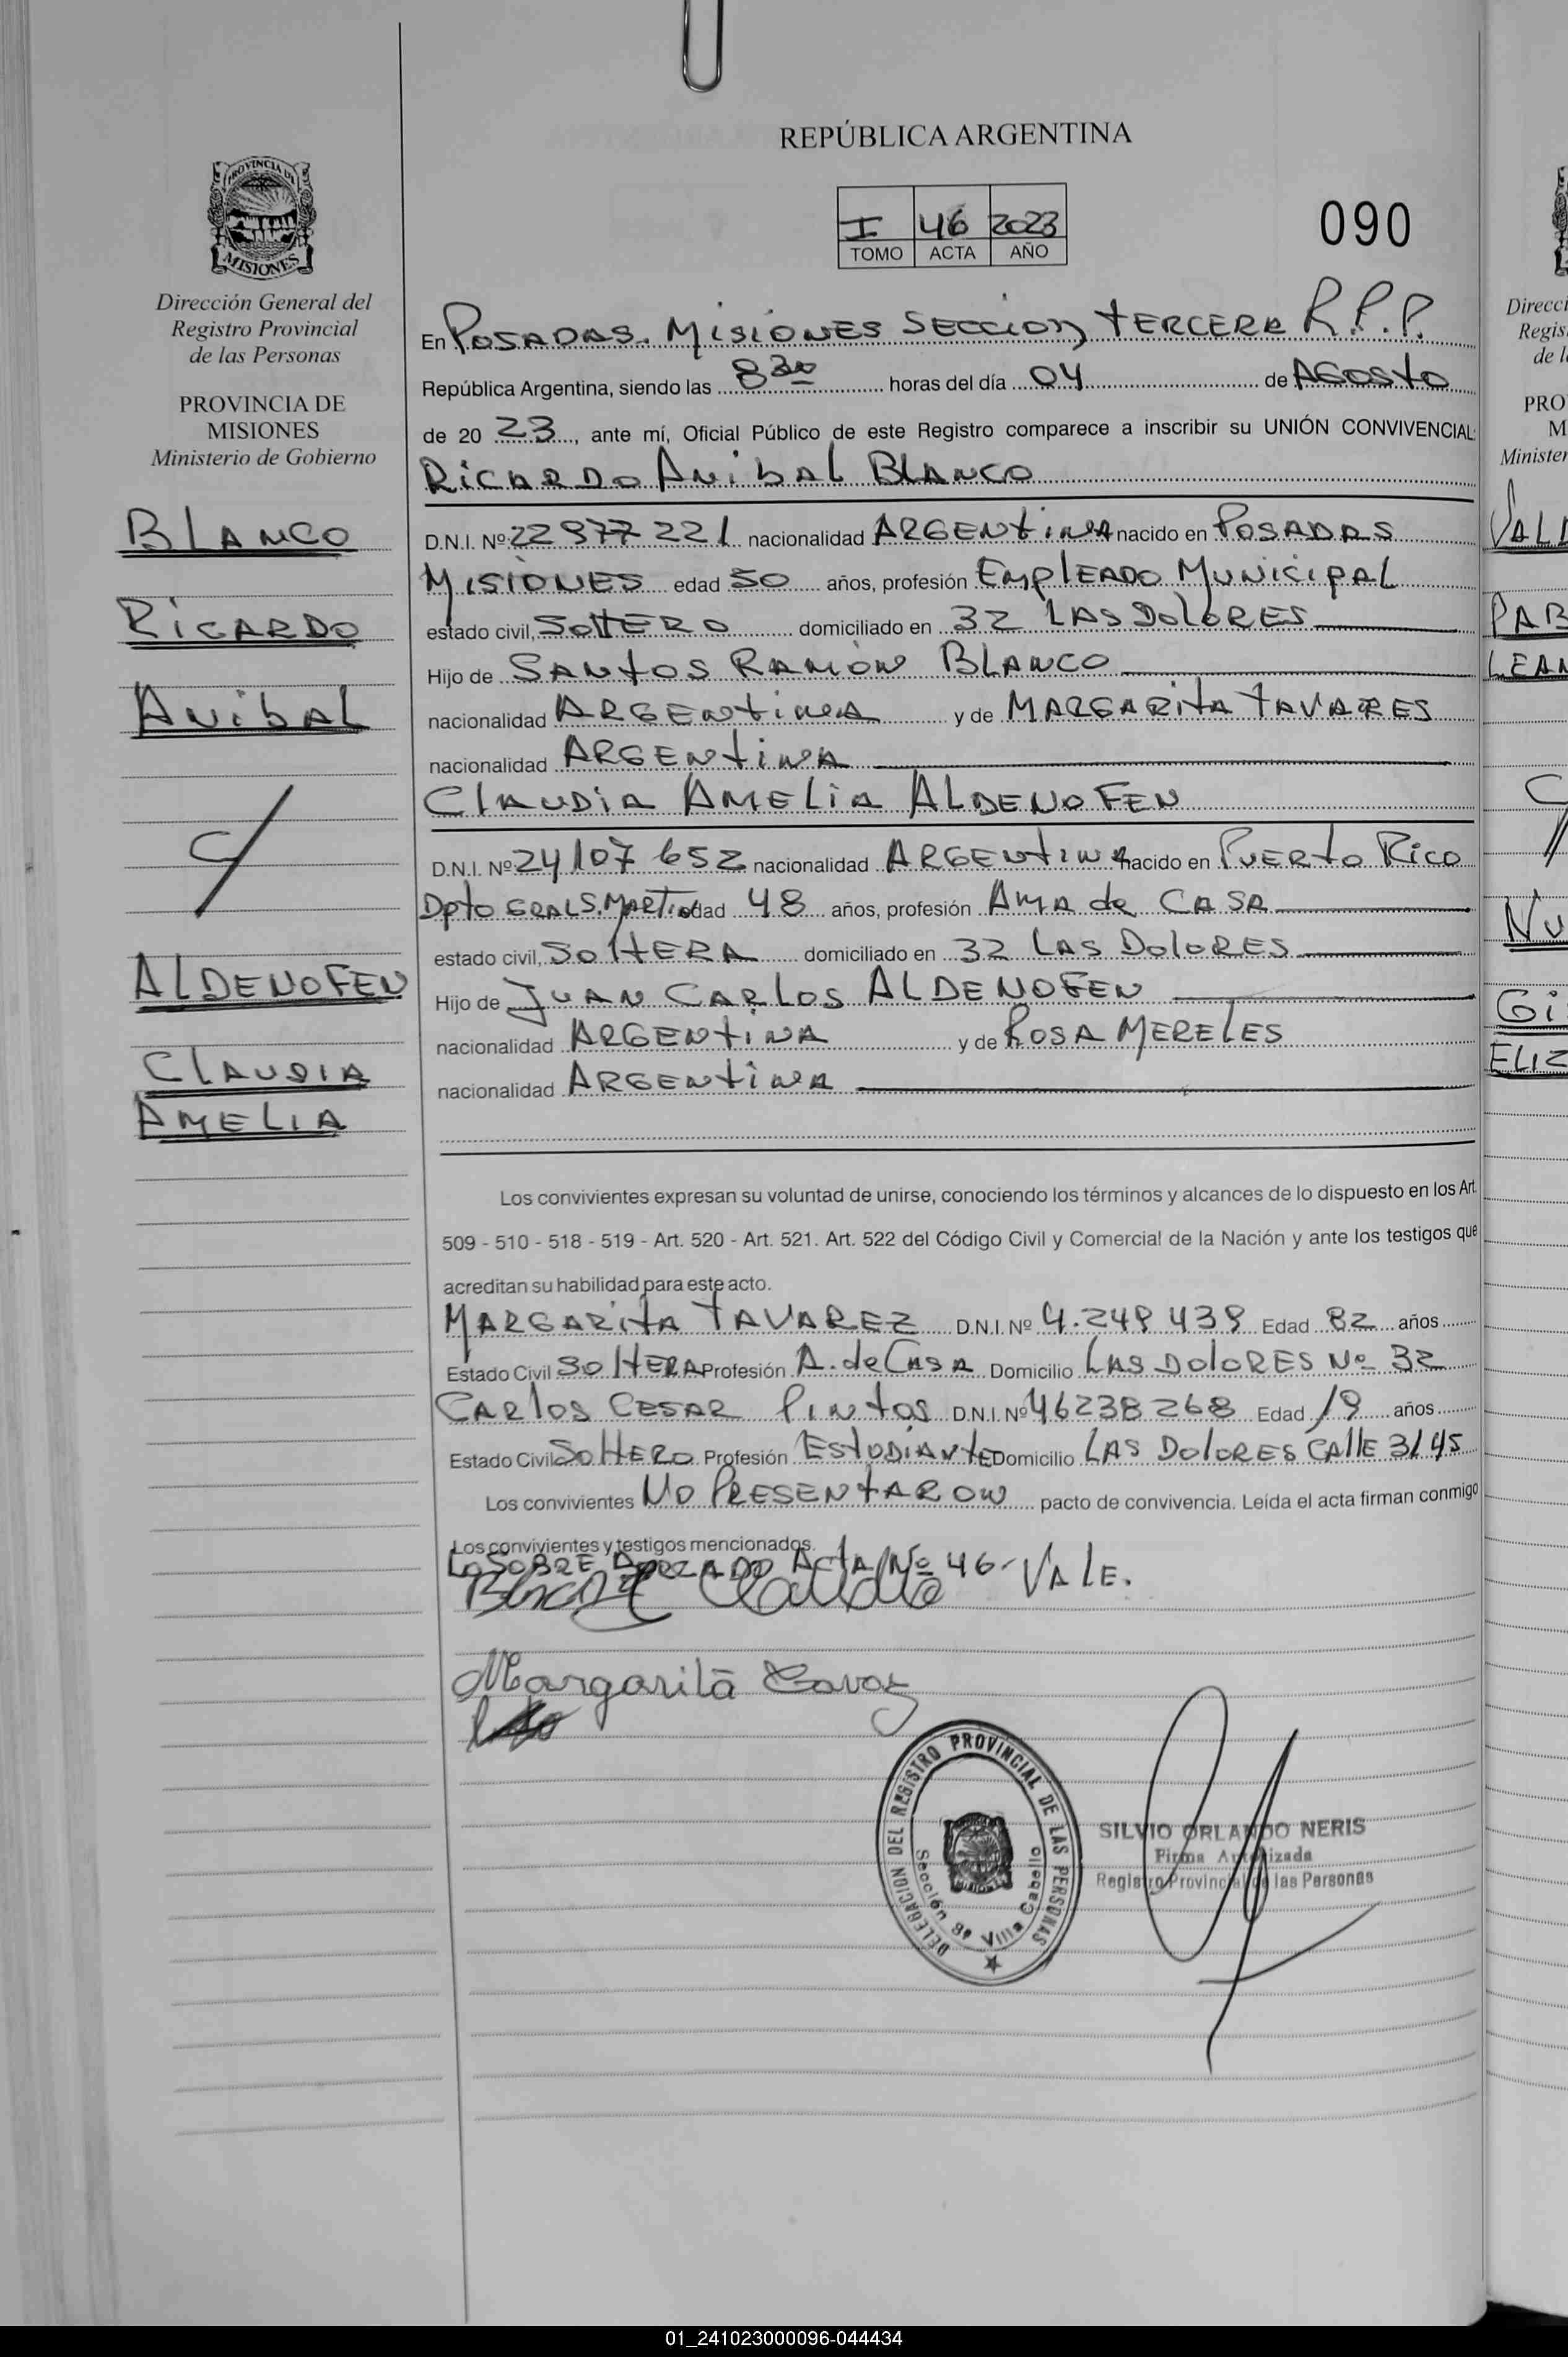 REPÚBLICA ARGENTINA
PROVINCIA DE
MISIONES
I 46 2023
TOMO ACTA AÑO
090
Dirección General del
Registro Provincial
de las Personas
PROVINCIA DE
MISIONES
Ministerio de Gobierno
BLANCO
RICARDO
ANIBAL
C/
ALDENOFEN
CLAUDIA
AMELIA
En POSADAS. MISIONES SECCION TERCERA R.P.P.
República Argentina, siendo las 8 30 horas del día 04 de AGOSTO
de 20 23, ante mí, Oficial Público de este Registro comparece a inscribir su UNIÓN CONVIVENCIAL:
RICARDO ANIBAL BLANCO
D.N.I. Nº 22977221 nacionalidad ARGENTINA nacido en POSADAS
MISIONES edad 50 años, profesión EMPLEADO MUNICIPAL
estado civil, SOLTERO domiciliado en 32 LAS DOLORES
Hijo de SANTOS RAMON BLANCO
nacionalidad ARGENTINA y de MARGARITA TAVARES
nacionalidad ARGENTINA
CLAUDIA AMELIA ALDENOFEN
D.N.I. Nº 24107652 nacionalidad ARGENTINA nacido en PUERTO RICO
Dpto GRAL S. MARTIN edad 48 años, profesión AMA de CASA
estado civil, SOLTERA domiciliado en 32 LAS DOLORES
Hijo de JUAN CARLOS ALDENOFEN
nacionalidad ARGENTINA y de ROSA MERELES
nacionalidad ARGENTINA
Los convivientes expresan su voluntad de unirse, conociendo los términos y alcances de lo dispuesto en los Art.
509 - 510 - 518 - 519 - Art. 520 - Art. 521. Art. 522 del Código Civil y Comercial de la Nación y ante los testigos que
acreditan su habilidad para este acto.
MARGARITA TAVAREZ D.N.I. Nº 4.249 439 Edad 82 años
Estado Civil SOLTERA Profesión A. de CASA Domicilio LAS DOLORES Nº 32
CARLOS CESAR PINTOS D.N.I. Nº 46238268 Edad 19 años
Estado Civil SOLTERO Profesión ESTUDIANTE Domicilio LAS DOLORES CALLE 3145
Los convivientes NO PRESENTARON pacto de convivencia. Leída el acta firman conmigo
Los convivientes y testigos mencionados.
Lo SOBRE BORRADO ACTA Nº 46 - VALE.
Margarita
DELEGACION DEL REGISTRO PROVINCIAL DE LAS PERSONAS
Sección 8ª Villa Cabello
SILVIO ORLANDO NERIS
Firma Autorizada
Registro Provincial de las Personas
Direcci
Regis
de l
PRO
M
Minister
VALL
PAB
LEAN
C/
NU
Gi
ELIZ
01_241023000096-044434